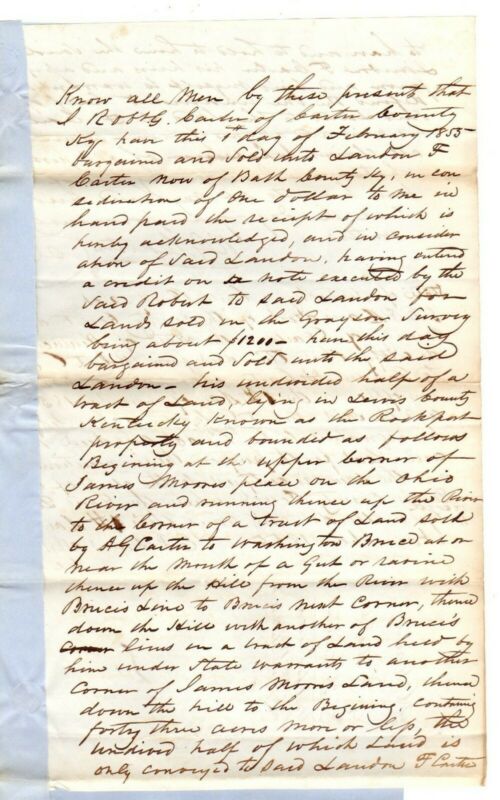 Know all Men by these presents that
I Robt G. Carter of Carter County
Ky have this 1st day of February 1855
bargained and Sold unto Landon F
Carter Now of Bath County Ky, in con
sediration of One dollar to me in
hand paid the receipt of which is
hereby acknowledged, and in consider
ation of Said Landon, having entered
a credit on note executed by the
Said Robert to Said Landon for
Lands sold in the Grayson Survey
being about $1200 - have this day
bargained and Sold unto the said
Landon - his undivided half of a
tract of Land lying in Lewis County
Kentucky Known as the Rockport
property and bounded as follows
Begining at the upper Corner of
James Morris place on the Ohio
River and running thence up the River
to the Corner of a tract of Land sold
by A G Carter to Washington Bruce at or
near the Mouth of a Gut or ravine
thence up the Hill from the River with
Bruces Line to Bruces next Corner, thence
down the Hill with another of Bruce's
lines in a tract of Land held by
him under State warrants to another
Corner of James Morris Land, thence
down the hill to the Begining, Containing
forty three acres More or less, the
undivid half of which Land is
only conveyed to Said Landon F Carter